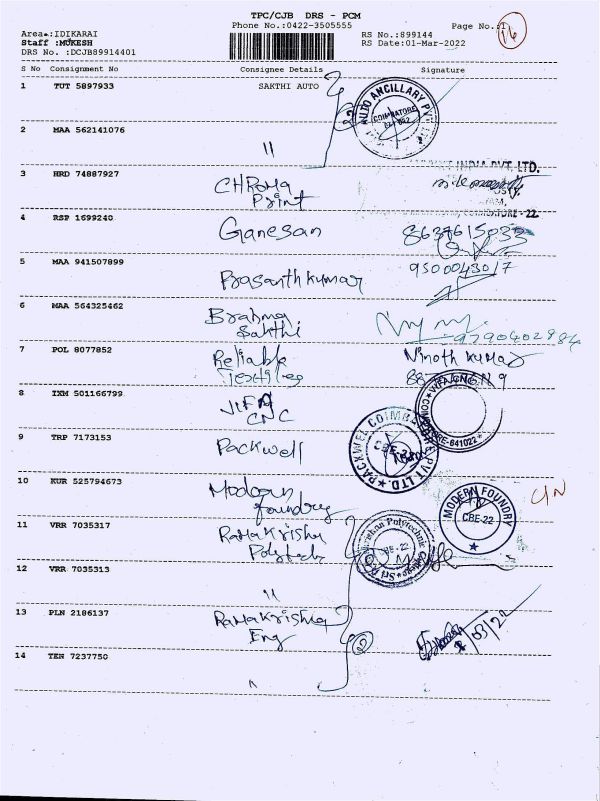 TPC/CJB DRS - PCM
Phone No.:0422-3505555
Page No.:1
Area :IDIKARAI
RS No.:899144
16
Staff :MUKESH
RS Date:01-Mar-2022
DRS No. :DCJB89914401
S No Consignment No Consignee Details Signature
1 TUT 5897933 SAKTHI AUTO
2
AUTO ANCILLARY PVT
COIMBATORE
2 MAA 562141076 "
3 HRD 74887927 INDIA PVT. LTD.
CHROMA
Print
COIMBATORE - 22
4 RSP 1699240 Ganesan 8637615033
5 MAA 941507899 Prasanth kumar 9500043017
6 MAA 564325462 Brahma
Sakthi
9790402984
7 POL 8077852 Reliable Vinoth kumar
Textiles
8 IXM 501166799
CNC
641022
9 TRP 7173153 Packwell
PACKWEL COIMBATORE PVT. LTD.
10 KUR 525794673 Modern
foundry
MODERN FOUNDRY
CBE-22
11 VRR 7035317 Ramakrishna
Polytech
Polytechnic
CBE-22
12 VRR 7035313 "
13 PLN 2186137 Ramakrishna
Eng
2
14 TEN 7237750